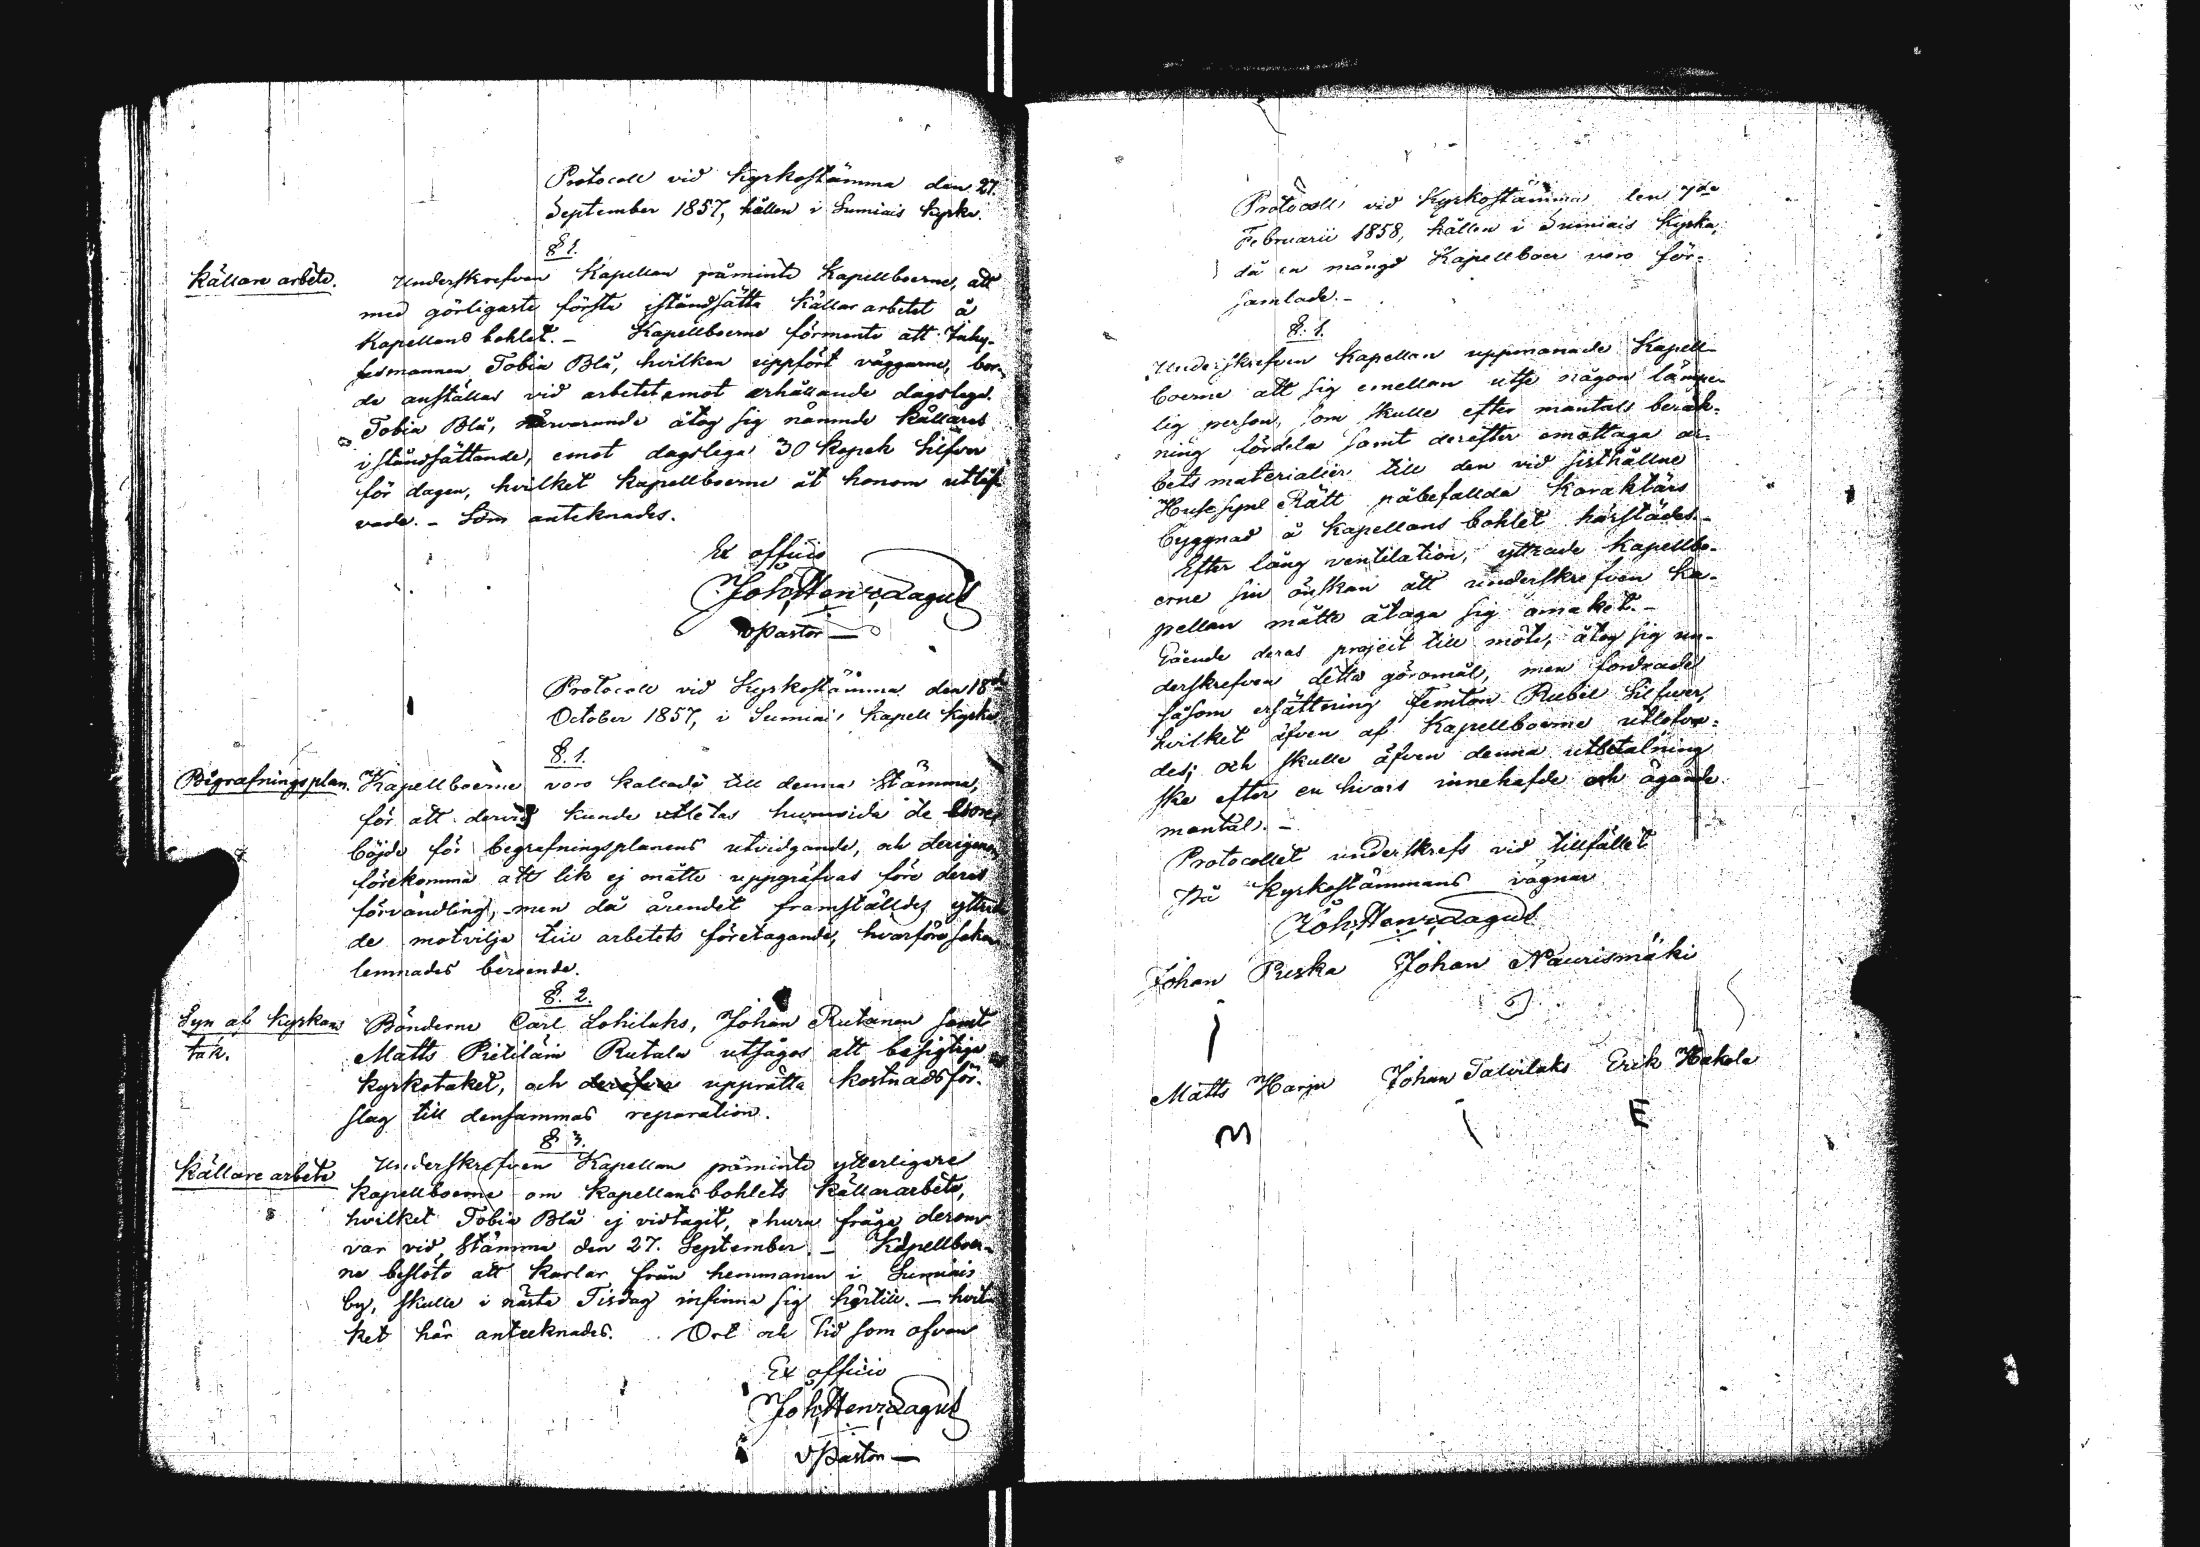 Protocoll vid Kyrkostämma den 27.
September 1857, hållen i Sumiais Kyrka.
§ 1.
Källare arbete.
Underskrefven Kapellan påminte Kapellboerne, att
med görligaste första iståndsätta Källar arbetet å
Kapellans bohlet. – Kapellboerne förmente att Inhy-
sesmannen Tobia Blå, hvilken uppfört väggarne, bor-
de anställas vid arbetet emot erhållande dagslega.
Tobia Blå, närvarande åtog sig nämnde Källares
iståndsättande, emot dagslega 30 Kopek Silfver
för dagen, hvilket Kapellboerne åt honom utlof-
vade. – Som anteknades.
Ex officio
Joh. Henr. Zagul
v Pastor
Protocoll vid Kyrkostämma den 18de
October 1857, i Sumiais Kapell Kyrka.
§. 1.
Begrafningsplan.
Kapellboerne voro kallade till denna Stämma,
för att dervid kunde utletas huruvida de voro
böjde för begrafningsplanens utvidgande, och derigenom
förekomma att lik ej måtte uppgräfvas före deras
förvandling, men då ärendet framställdes yttra-
de motvilja till arbetets företagande, hvarföre saken
lemnades beroende.
§. 2.
Syn af Kyrkans
tak.
Bönderne Carl Lohilaks, Johan Rutanen samt
Matts Pietiläin Rutala utsågos att besigtiga
Kyrkotaket, och derefver upprätta kostnadsför-
slag till densammas reparation.
§ 3.
Källare arbete
Underskrefven Kapellan påminte ytterligare
Kapellboerne om Kapellansbohlets Källararbete,
hvilket Tobia Blå ej vidtagit, ehuru fråga derom
var vid Stämma den 27. September. – Kapellboer-
ne beslöto att karlar från hemmanen i Sumiais
by, skulle i nästa Tisdag infinna sig härtill. – hvil-
ket här anteeknades. Ort och Tid som ofvan
Ex officio
Joh. Henr. Zagul
v Pastor
Protocoll vid Kyrkostämma den 7de
Februarii 1858, hållen i Sumiais Kyrka,
då en mängd Kapellboer voro för-
samlade. –
§. 1.
Underskrefven Kapellan uppmanade Kapell-
boerne att sig emellan utse någon lämpe-
lig person, som skulle efter mantals beräk-
ning fördela samt derefter emottaga ar-
bets materialier till den vid sisthållne
Husesyns Rätt påbefallda Karaktärs
byggnad å Kapellans bohlet härstädes. –
Efter lång ventilation, yttrade Kapellbo-
erne sin önskan att underskrefven Ka-
pellan måtte åtaga sig omaket. –
Gående deras project till möte, åtog sig un-
derskrefven detta göromål, men fordrade
såsom ersättning Femton Rubel Silfver,
hvilket äfven af Kapellboerne utlofva-
des; och skulle äfven denna utbetalning
ske efter en hvars innehafde och ägande
mantal. –
Protocollet underskrefs vid tillfället
På Kyrkostämmans vägnar
Joh. Henr. Zagul
Johan Puska Johan Naurismäki
Matts Harju Johan Talvilaks Erik Hakola
M
E